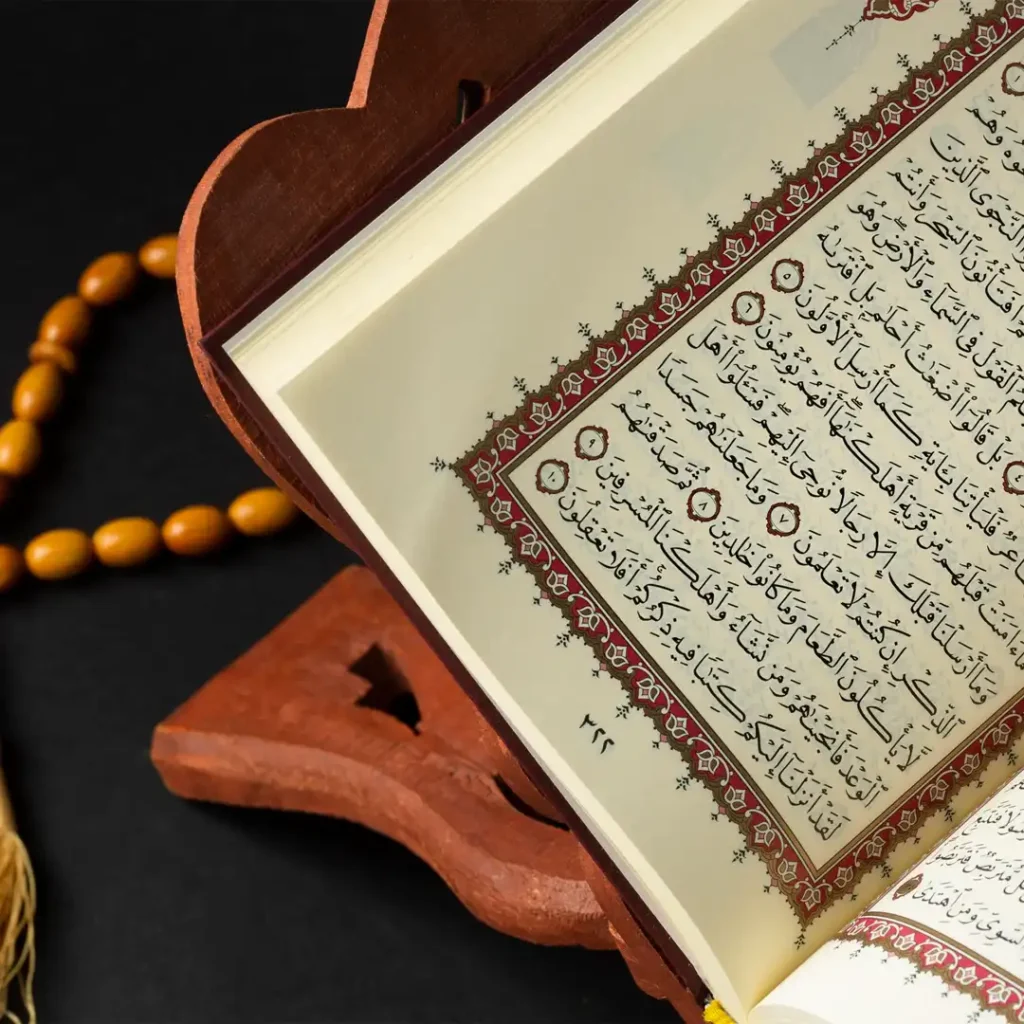 وَهُمْ
ٱلنَّجْوَى ٱلَّذِينَ
أَفَتَأْتُونَ ٱلسِّحْرَ وَأَنتُمْ
ٱلْقَوْلَ فِى ٱلسَّمَآءِ وَٱلْأَرْضِ وَهُوَ
بَلْ قَالُوٓا۟ أَضْغَٰثُ أَحْلَٰمٍۭ بَلِ ٱفْتَرَىٰهُ
فَلْيَأْتِنَا بِـَٔايَةٍ كَمَآ أُرْسِلَ ٱلْأَوَّلُونَ ٥
ءَامَنَتْ قَبْلَهُم مِّن قَرْيَةٍ أَهْلَكْنَٰهَآ أَفَهُمْ يُؤْمِنُونَ ٦
وَمَآ أَرْسَلْنَا قَبْلَكَ إِلَّا رِجَالًا نُّوحِىٓ إِلَيْهِمْ فَسْـَٔلُوٓا۟ أَهْلَ
ٱلذِّكْرِ إِن كُنتُمْ لَا تَعْلَمُونَ ٧ وَمَا جَعَلْنَٰهُمْ جَسَدًا
لَّا يَأْكُلُونَ ٱلطَّعَامَ وَمَا كَانُوا۟ خَٰلِدِينَ ٨ ثُمَّ صَدَقْنَٰهُمُ
ٱلْوَعْدَ فَأَنجَيْنَٰهُمْ وَمَن نَّشَآءُ وَأَهْلَكْنَا ٱلْمُسْرِفِينَ ٩
لَقَدْ أَنزَلْنَآ إِلَيْكُمْ كِتَٰبًا فِيهِ ذِكْرُكُمْ أَفَلَا تَعْقِلُونَ ١٠
٣٢٢
ٱلسَّوِىِّ وَمَنِ ٱهْتَدَىٰ